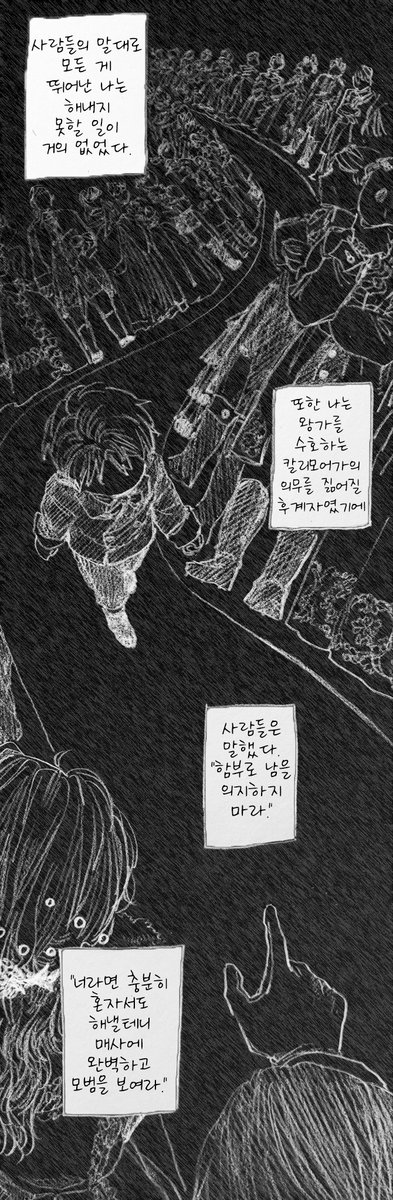 사람들의 말대로
모든 게
뛰어난 나는
해내지
못할 일이
거의 없었다.
또한 나는
왕가를
수호하는
칼리모어가의
의무를 짊어질
후계자였기에
사람들은
말했다.
"함부로 남을
의지하지
마라."
"너라면 충분히
혼자서도
해낼테니
매사에
완벽하고
모범을 보여라."